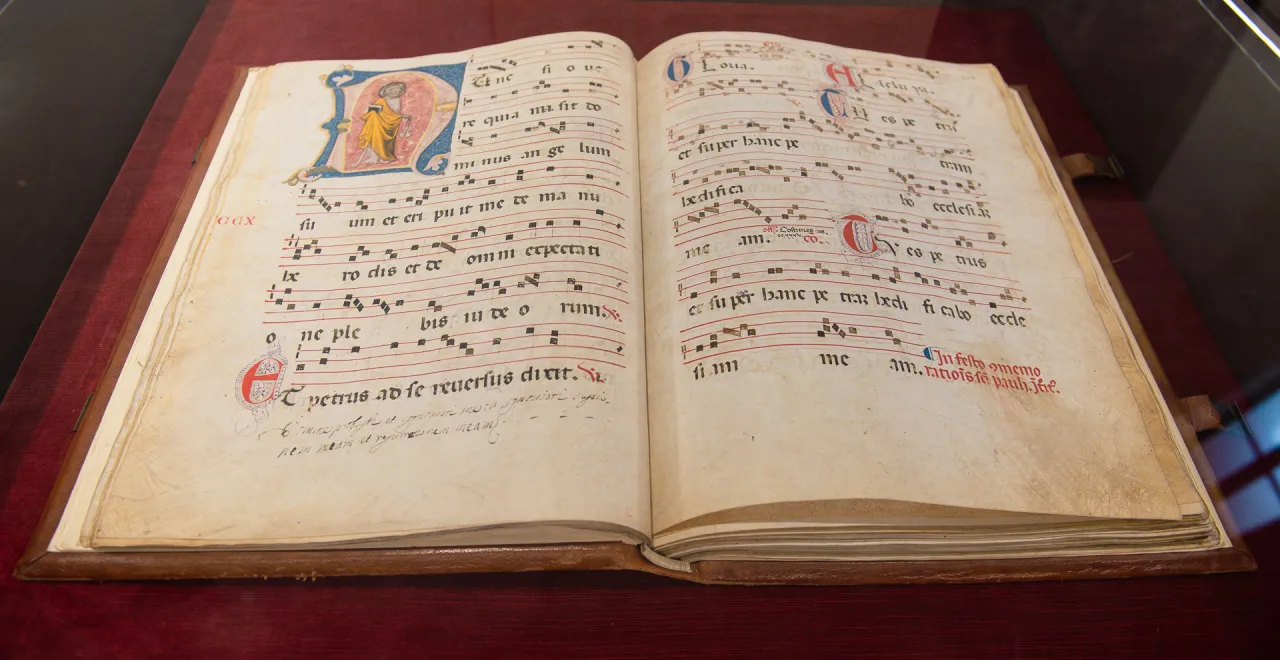 Unc si o ve
re quia ma sit do
mi nus an ge lum
su um et eri pu it me de ma nu
CCX
he ro dis et de omni expectati
o ne ple bis iu de o rum.
ET petrus ad se reversus dixit.
nem meam et
Gloria. Alleluya.
Tu es pe trus
et super hanc pe tram
hedifica bo ecclesiaz
me am. co. Tu es pe trus
et super hanc pe traz hedi fi cabo eccle
si am me am. In festo 9memo
ratiois sci pauli